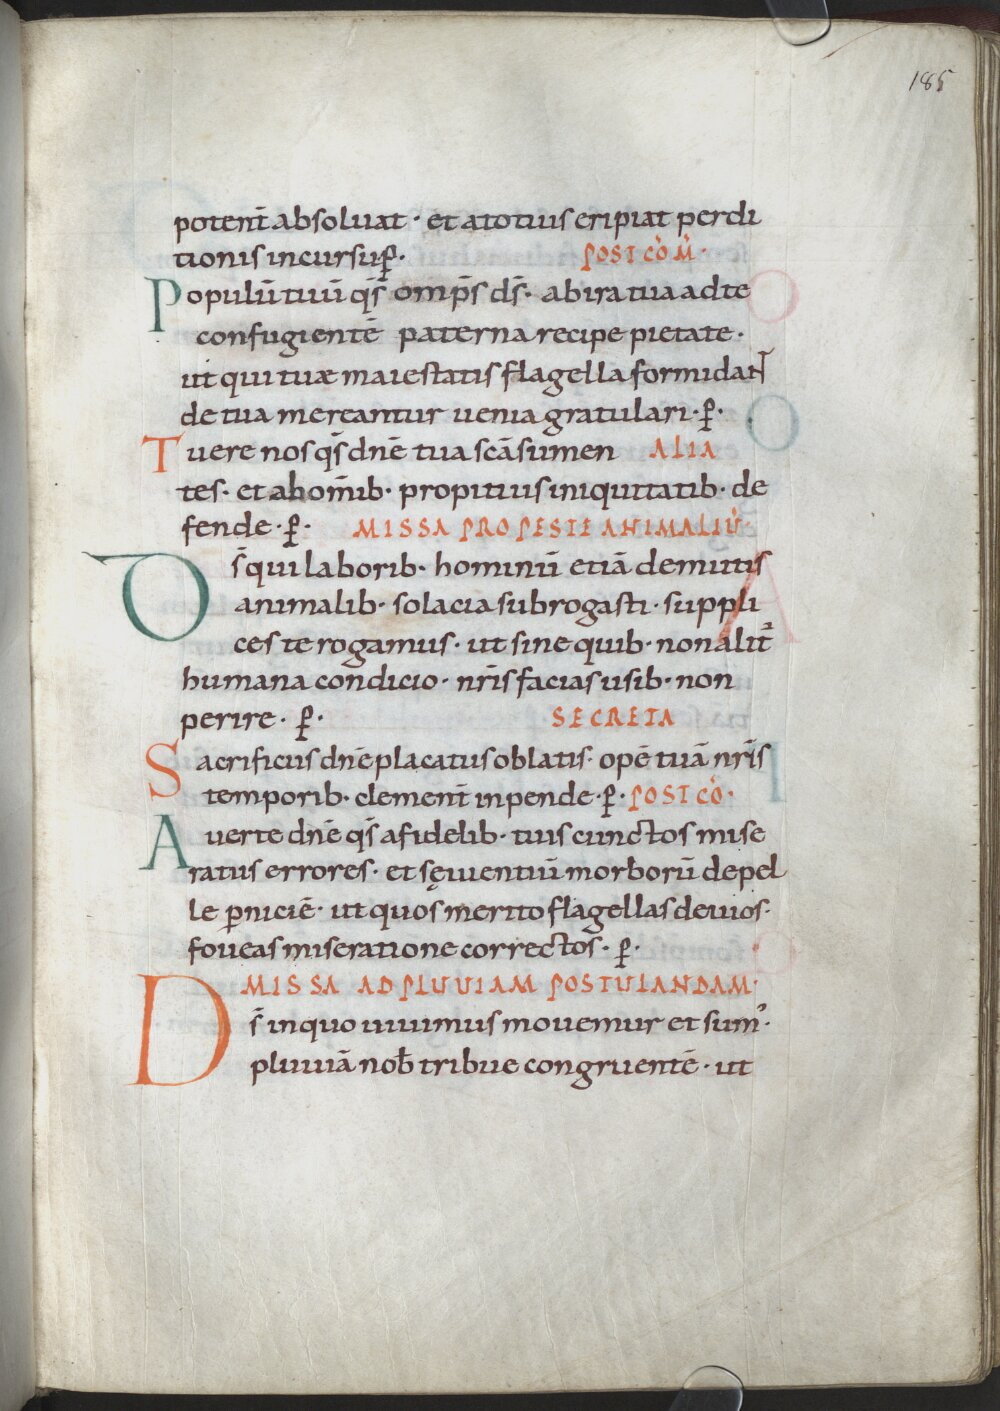 185
potent̄ absoluat · et atotius eripiat perdi
tionis incursu p̄ · POST COM̄ ·
Populū tuū qs̄ omps̄ ds̄ · abira tua adte
confugientē paterna recipe pietate ·
ut qui tuæ maiestatis flagella formidan̄t
de tua mereantur uenia gratulari · p̄ ·
Tuere nos qs̄ dnē tua scā sumen ALIA
tes · et abom̄ib · propitius iniquitatib · de
fende · p̄ · MISSA PRO PESTE ANIMALIŪ ·
Ds̄ qui laborib · hominū etiā demutis
animalib · solacia subrogasti · suppli
ces te rogamus · ut sine quib · non alit᷑
humana condicio · nr̄is facias usib · non
perire · p̄ · SECRETA
Sacrificiis dnē placatus oblatis · opē tuā nr̄is
temporib · clement̄ inpende · p̄ · POST CO ·
Auerte dnē qs̄ afidelib · tuis cunctos mise
ratus errores · et sęuientiū morborū depel
le p̄niciē · ut quos merito flagellas deuios ·
foueas miseratione correctos · p̄ ·
MISSA AD PLUUIAM POSTULANDAM ·
Ds̄ inquo uiuimus mouemur et sum᾽ ·
pluuiā nob̄ tribue congruentē · ut